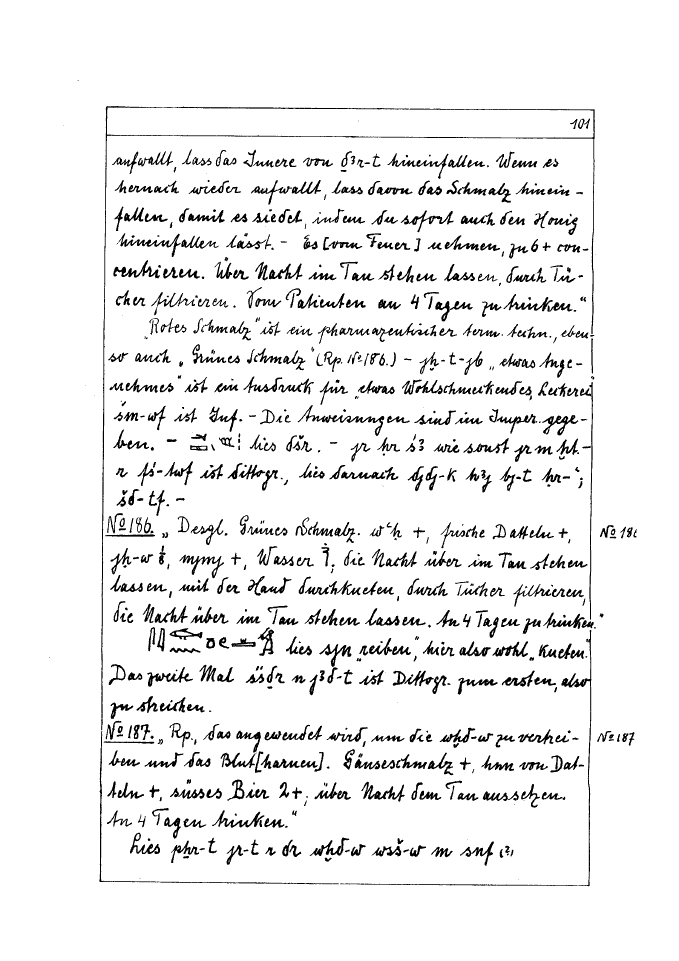 101
aufwallt, lass das Innere von ḏꜣr-t hineinfallen. Wenn es
hernach wieder aufwallt, lass davon das Schmalz hinein-
fallen, damit es siedet, indem du sofort auch den Honig
hineinfallen lässt. - Es [vom Feuer] nehmen, zu 6+ con-
centrieren. Über Nacht im Tau stehen lassen, durch Tü-
cher filtrieren. Vom Patienten an 4 Tagen zu trinken."
„Rotes Schmalz" ist ein pharmazeutischer term. techn., eben-
so auch „Grünes Schmalz" (Rp. No 186.) - jḫ-t-jb „etwas Ange-
nehmes" ist ein Ausdruck für „etwas Wohlschmeckendes, Leckerei
šm-wf ist Inf. - Die Anweisungen sind im Imper. gege-
ben. - lies dšr. - jr ḥr śꜣ wie sonst jr m ḫt. -
r fś-twf ist Dittogr., lies darnach dj dj-k hꜣj bj-t ḥr-ʿ;
šd-tf. -
No 186. „Desgl. Grünes Schmalz. wʿḥ +, frische Datteln +, No 186
jḫ-w ⅛, mjmj +, Wasser ; die Nacht über im Tau stehen
lassen, mit der Hand durchkneten, durch Tücher filtrieren,
die Nacht über im Tau stehen lassen. An 4 Tagen zu trinken."
lies sjn „reiben", hier also wohl „kneten."
Das zweite Mal śśḏr n jꜣd-t ist Dittogr. zum ersten, also
zu streichen.
No 187. „Rp., das angewendet wird, um die wḫd-w zu vertrei- No 187
ben und das Blut[harnen]. Gänseschmalz +, hnn von Dat-
teln +, süsses Bier 2+; über Nacht dem Tau aussetzen.
An 4 Tagen trinken."
Lies pẖr-t jr-t r dr wḫd-w wsš-w m snf (?)